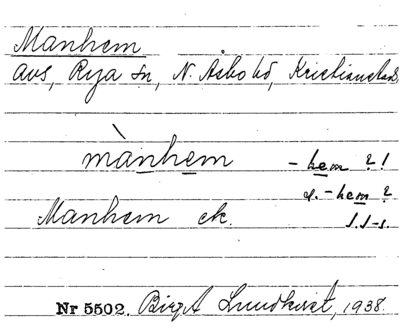 Manhem
avs, Rya sn, N. Åsbo hd, Kristianstads
mànhem -hem ?!
el. -hem ?
Manhem ek. J.J-s.
Nr 5502. Birgit Lundkvist, 1938.